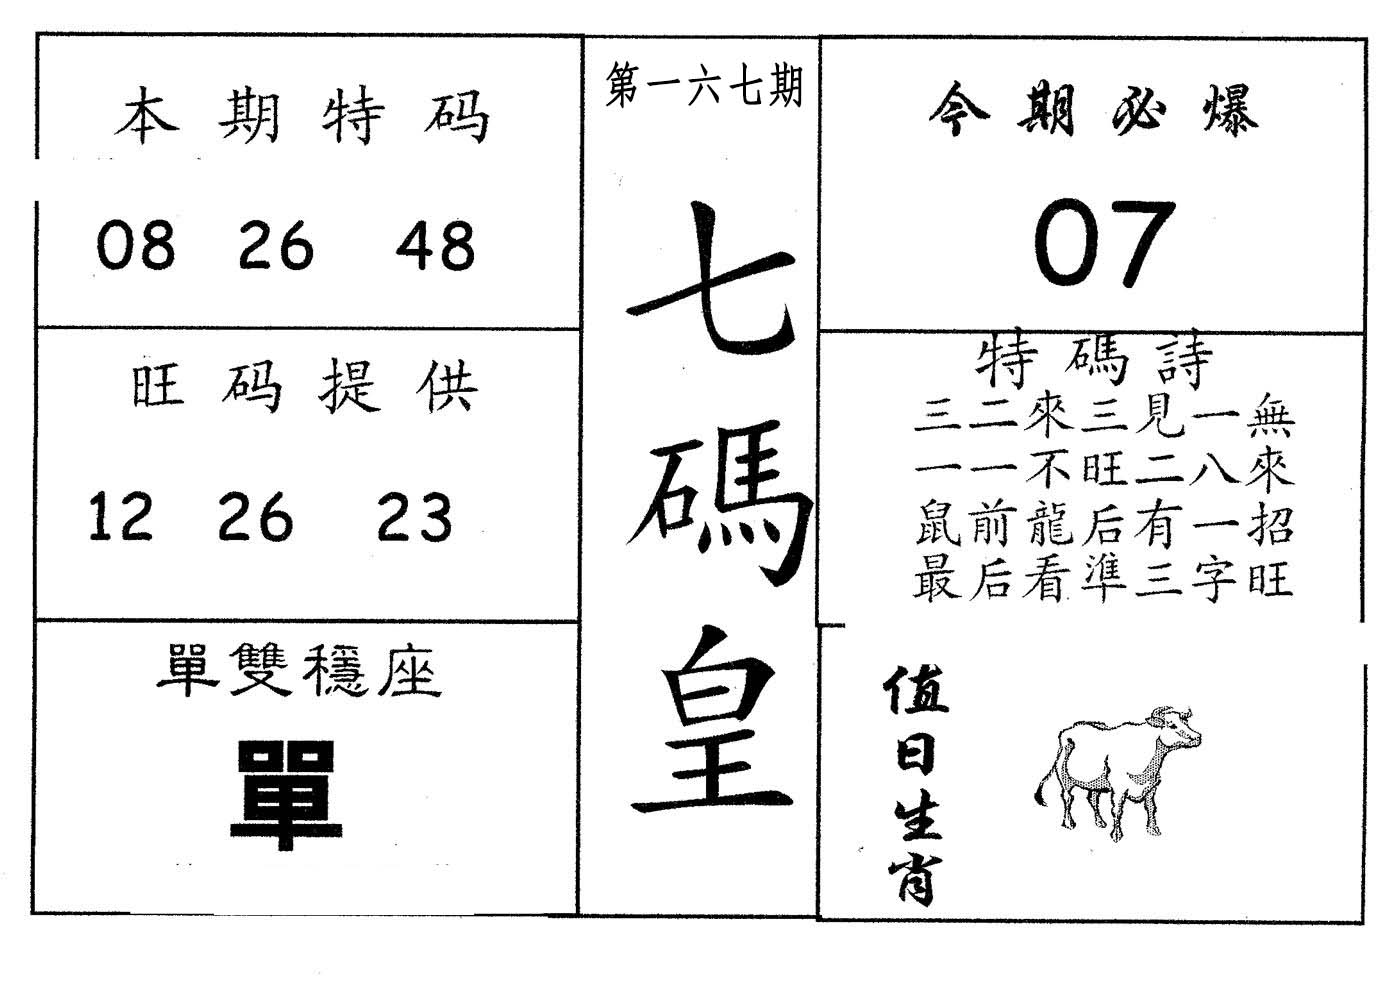 本期特码
08 26 48
旺码提供
12 26 23
單雙穩座
單
第一六七期
七碼皇
今期必爆
07
特碼詩
三二來三見一無
一一不旺二八來
鼠前龍后有一招
最后看準三字旺
值日生肖